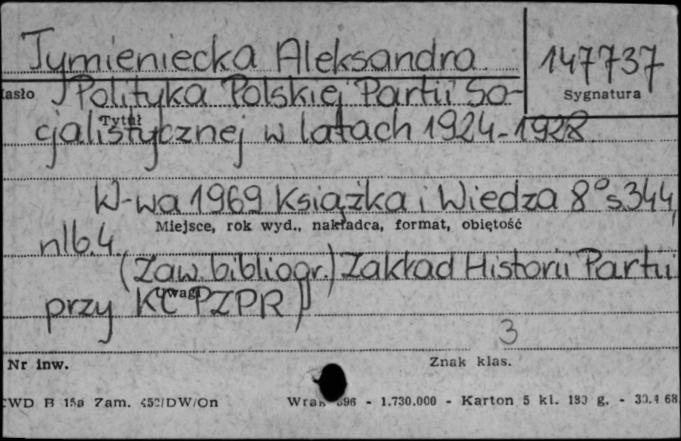 Tymieniecka Aleksandra
147737
asło
Sygnatura
Polityka Polskiej Partii So-
Tytuł
cjalistycznej w latach 1924-1928
W-wa 1969 Książka i Wiedza 8° s.344,
Miejsce, rok wyd., nakładca, format, objętość
nlb.4
(Zaw. bibliogr.) Zakład Historii Partii
Uwagi
przy KC PZPR)
3
Nr inw.
Znak klas.
CWD B 15a Zam. 452/DW/On
- 1.730.000 - Karton 5 kl. 180 g. - 30.4 68